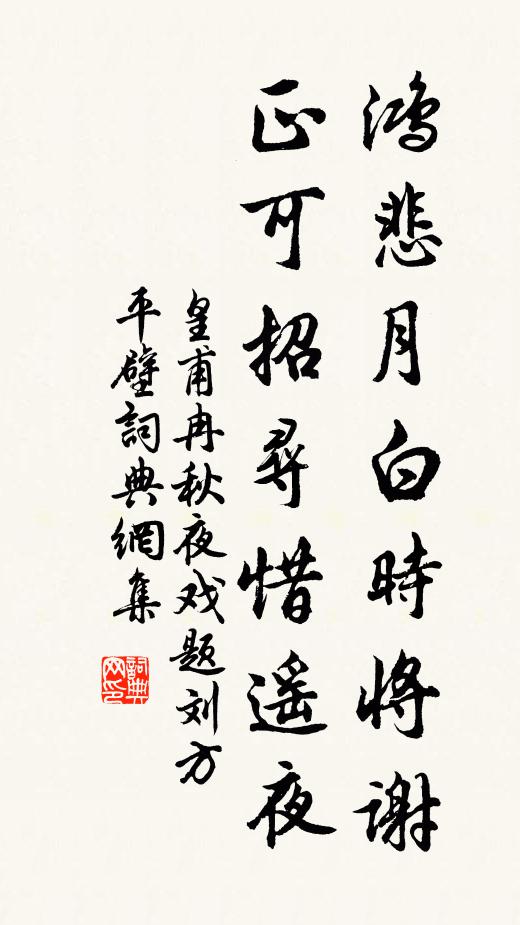 鸿悲月白時将谢
正可招尋惜遥夜
皇甫冉秋夜戏题刘方
平壁詞典網集
詞典网印